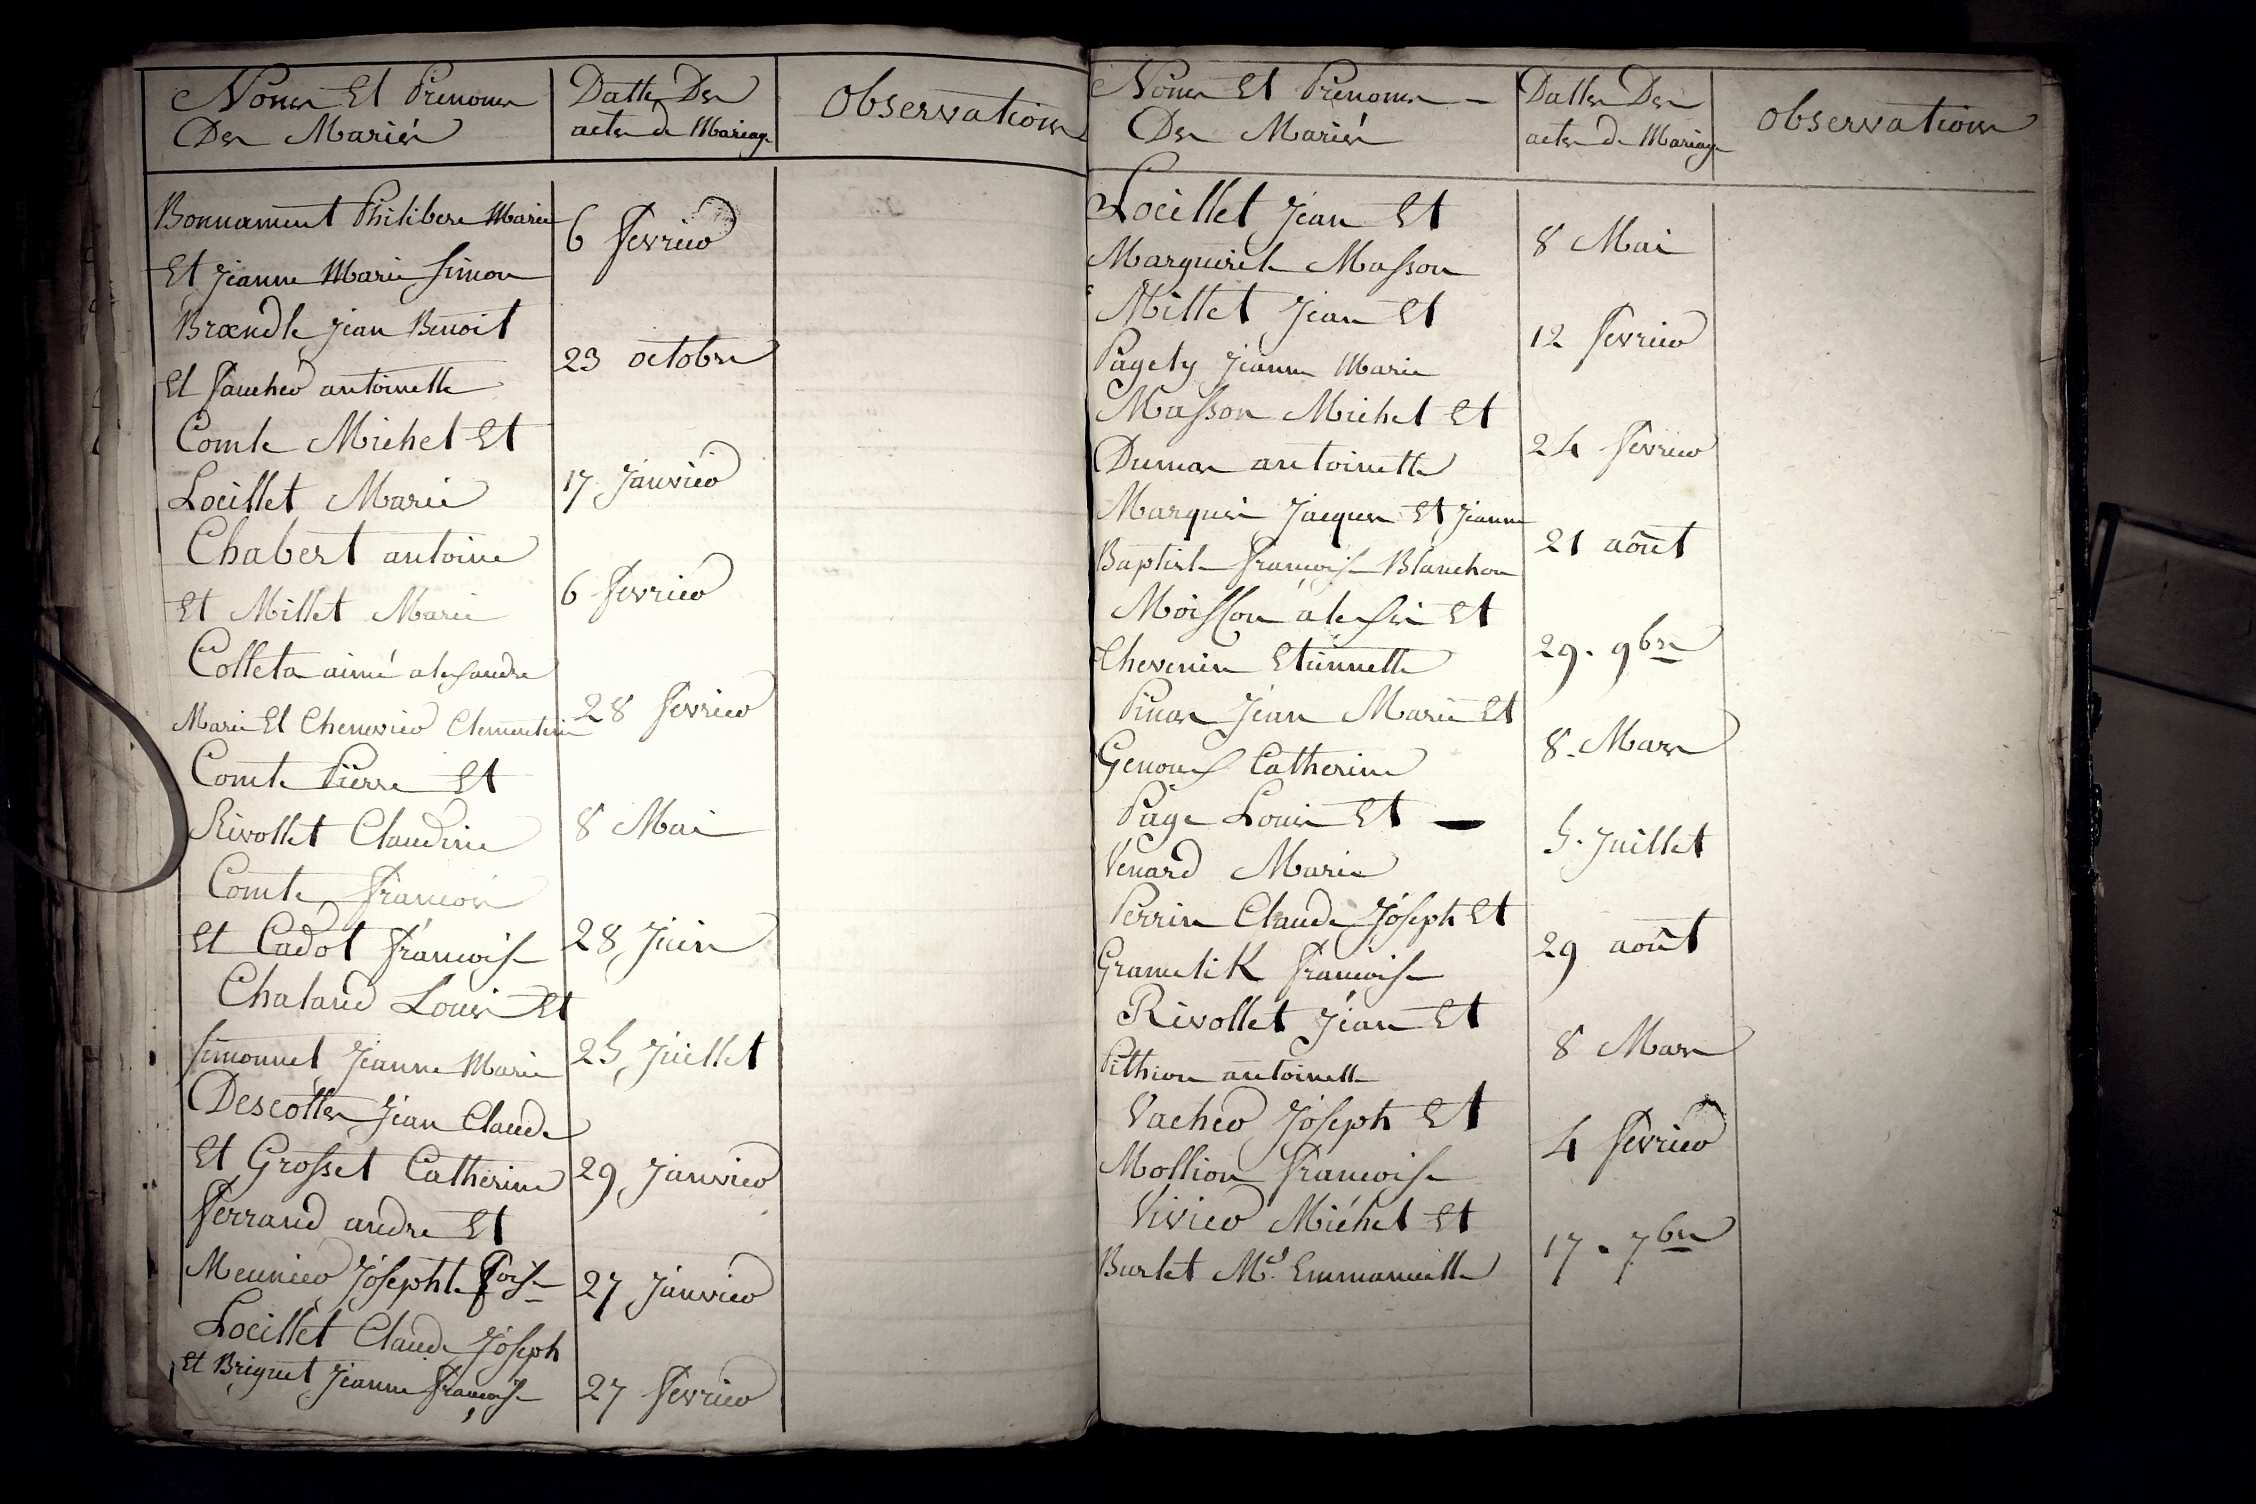 Noms Et Prenoms
Des Mariés
Datte Des
actes de Mariage
Observations
Bonnament Philibert Marie
Et Jeanne Marie Simon
6 fevrier
Brœndle Jean Benoit
Et faucher antoinette
23 octobre
Comte Michel Et
Loeillet Marie
17 Janvier
Chabert antoine
Et Millet Marie
6 fevrier
Colleta aimé alexandre
Marie Et Chenevier Clementine
28 fevrier
Comte Pierre Et
Rivollet Claudine
8 Mai
Comte francois
Et Cadot francoise
28 Juin
Chaland Louis Et
Simonnet Jeanne Marie
25 Juillet
Descottes Jean Claude
Et Grosset Catherine
29 Janvier
ferrand andre Et
Meunier Josephte foise
27 Janvier
Loeillet Claude Joseph
Et Briguet Jeanne francoise
27 fevrier
Noms Et Prenoms
Des Mariés
Dattes Des
actes de Mariage
Observations
Loeillet Jean Et
Marguerite Masson
8 Mai
Millet Jean Et
Pagety Jeanne Marie
12 fevrier
Masson Michel Et
Dumas antoinette
24 fevrier
Marquis Jacques Et Jeanne
Baptiste francoise Blanchon
21 août
Moisson alexis Et
Thevenin Etiennette
29. 9bre
Pinas Jean Marie Et
Genoux Catherine
8. Mars
Page Louis Et
Venard Marie
5. Juillet
Perrin Claude Joseph Et
GrametiK francoise
29 août
Rivollet Jean Et
Pithion antoinette
8 Mars
Vacher Joseph Et
Mollion francoise
4 fevrier
Vivier Michel Et
Burlet Me. Emmanuelle
17. 7bre